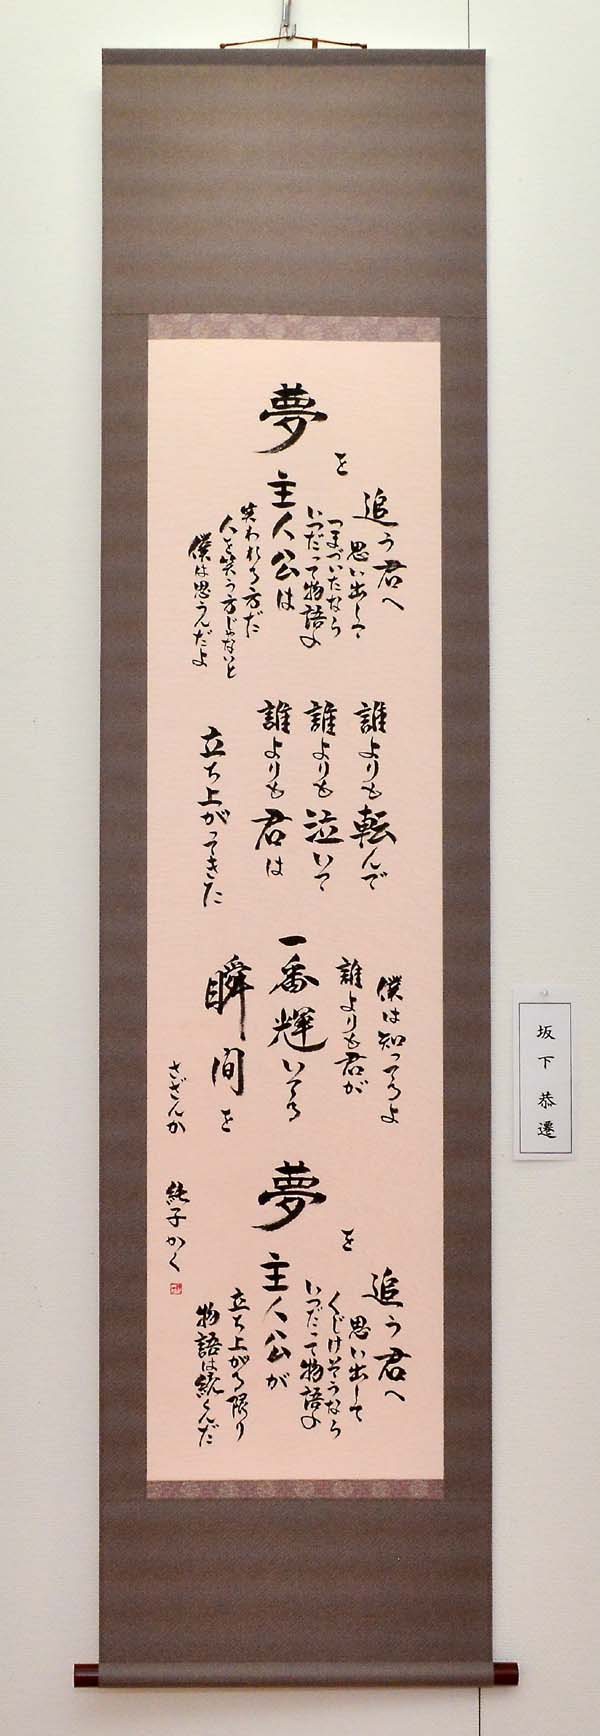 夢を追う君へ
思い出して
つまづいたなら
いつだって物語の
主人公は
笑われる方だ
人を笑う方じゃないと
僕は思うんだよ
誰よりも転んで
誰よりも泣いて
誰よりも君は
立ち上がってきた
僕は知ってるよ
誰よりも君が
一番輝いてる
瞬間を
夢を追う君へ
思い出して
くじけそうなら
いつだって物語の
主人公が
立ち上がる限り
物語は続くんだ
さざんか
純子かく
坂下恭遷